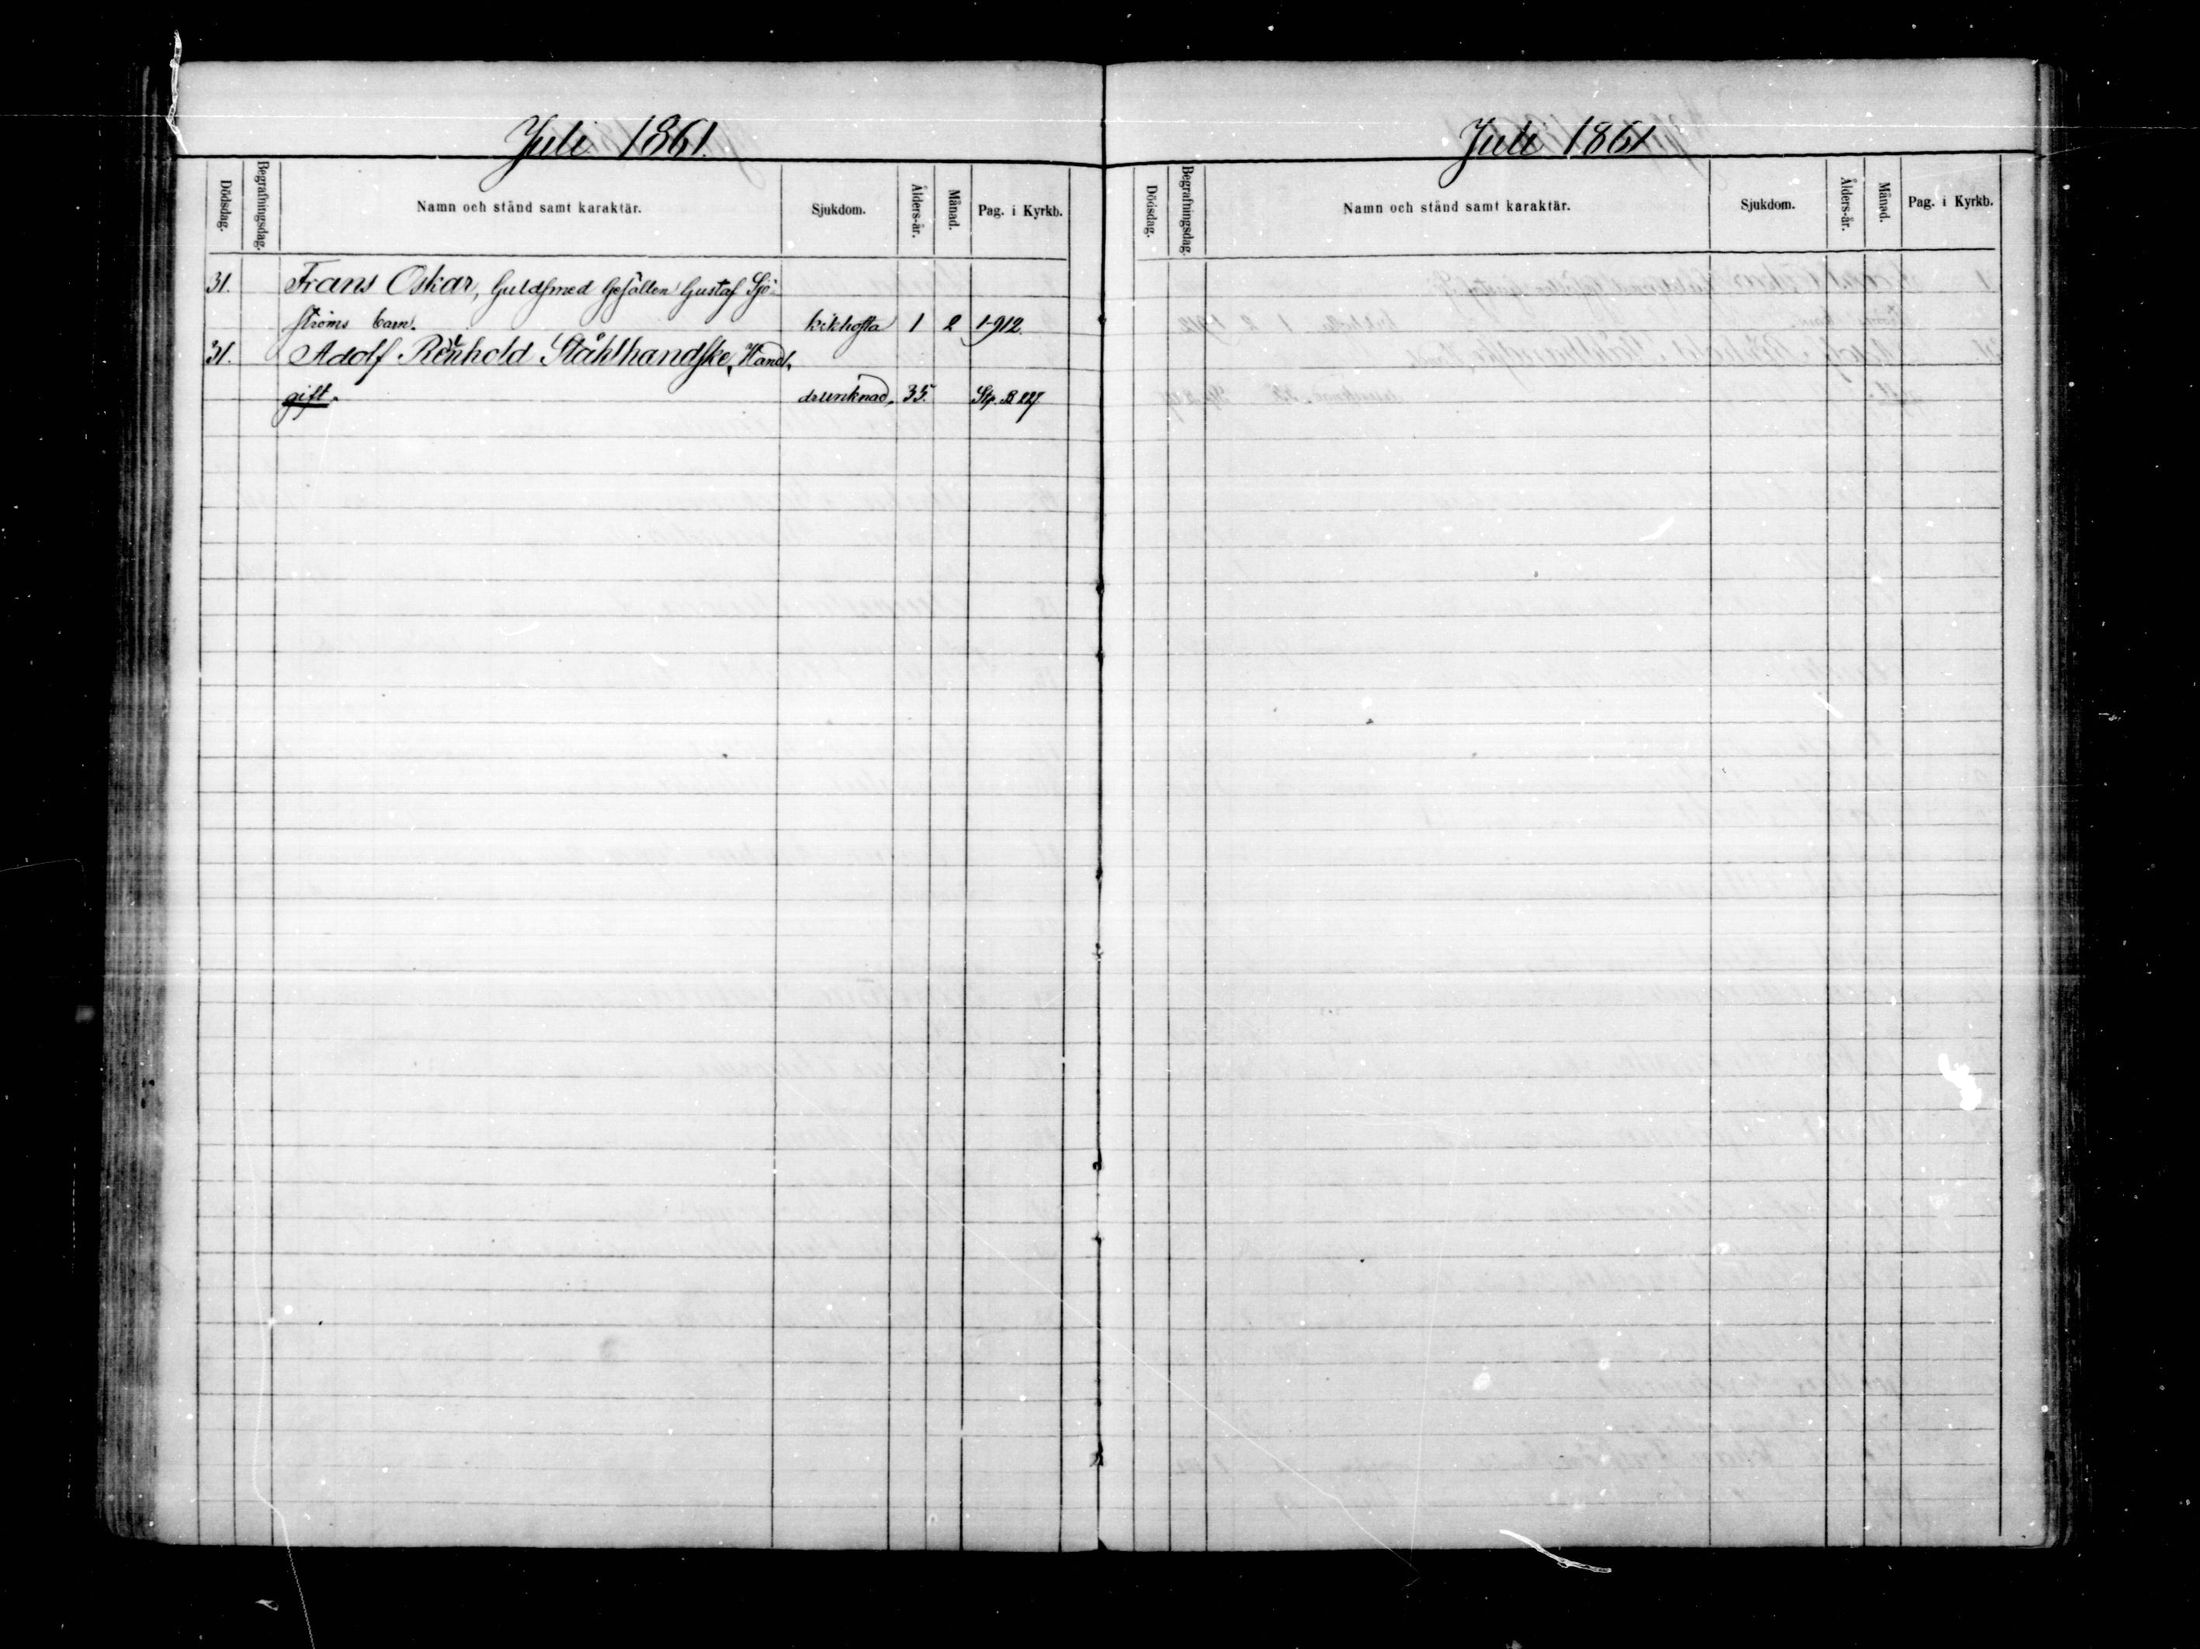 Juli 1861.
Dödsdag. Begrafningsdag. Namn och stånd samt karaktär. Sjukdom. Ålders-år. Månad. Pag. i Kyrkb.
31. Frans Oskar, Guldsmed Gesällen Gustaf Sjö-
ströms barn. kikhosta 1 2 1-912.
31. Adolf Reinhold Stålhandske, Handl.
gift. drunknad. 35. Stp. B 227
Juli 1861
Dödsdag. Begrafningsdag. Namn och stånd samt karaktär. Sjukdom. Ålders-år. Månad. Pag. i Kyrkb.